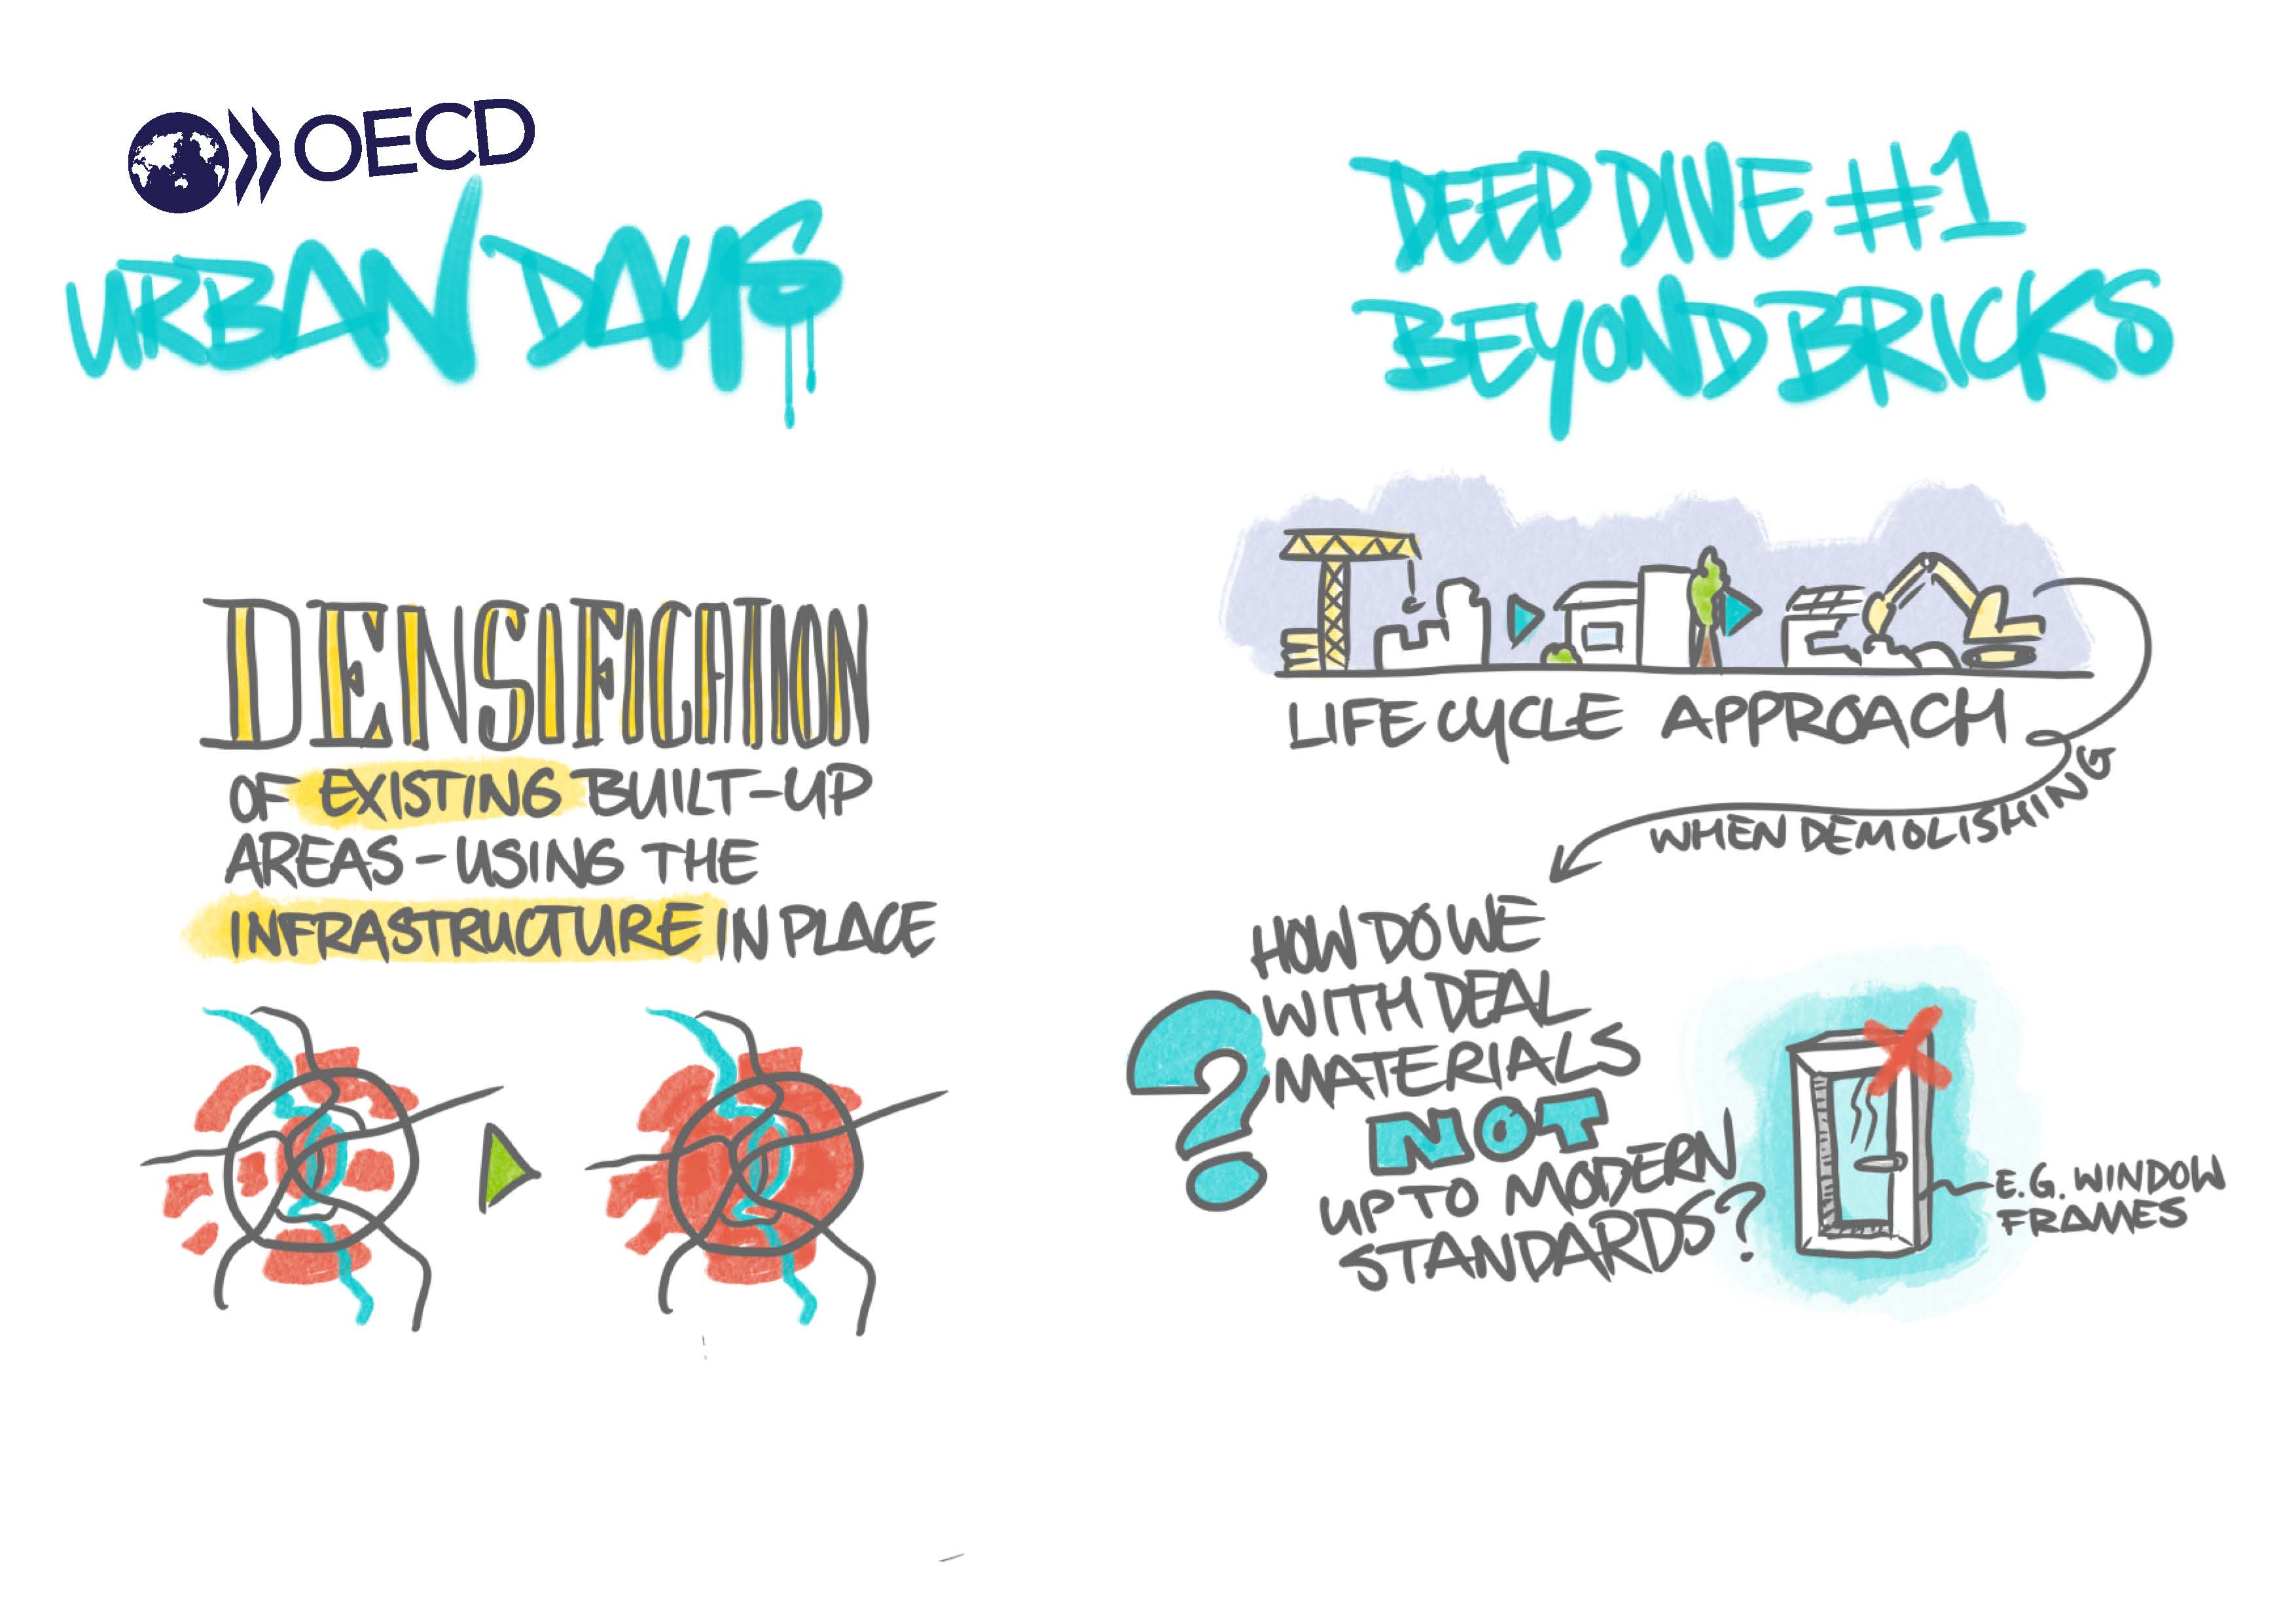 OECD
URBAN DAYS
DEEP DIVE #1
BEYOND BRICKS
DENSIFICATION
OF EXISTING BUILT-UP
AREAS - USING THE
INFRASTRUCTURE IN PLACE
LIFE CYCLE APPROACH
WHEN DEMOLISHING
HOW DO WE
WITH DEAL
MATERIALS
NOT
UP TO MODERN
STANDARDS?
?
E.G. WINDOW
FRAMES